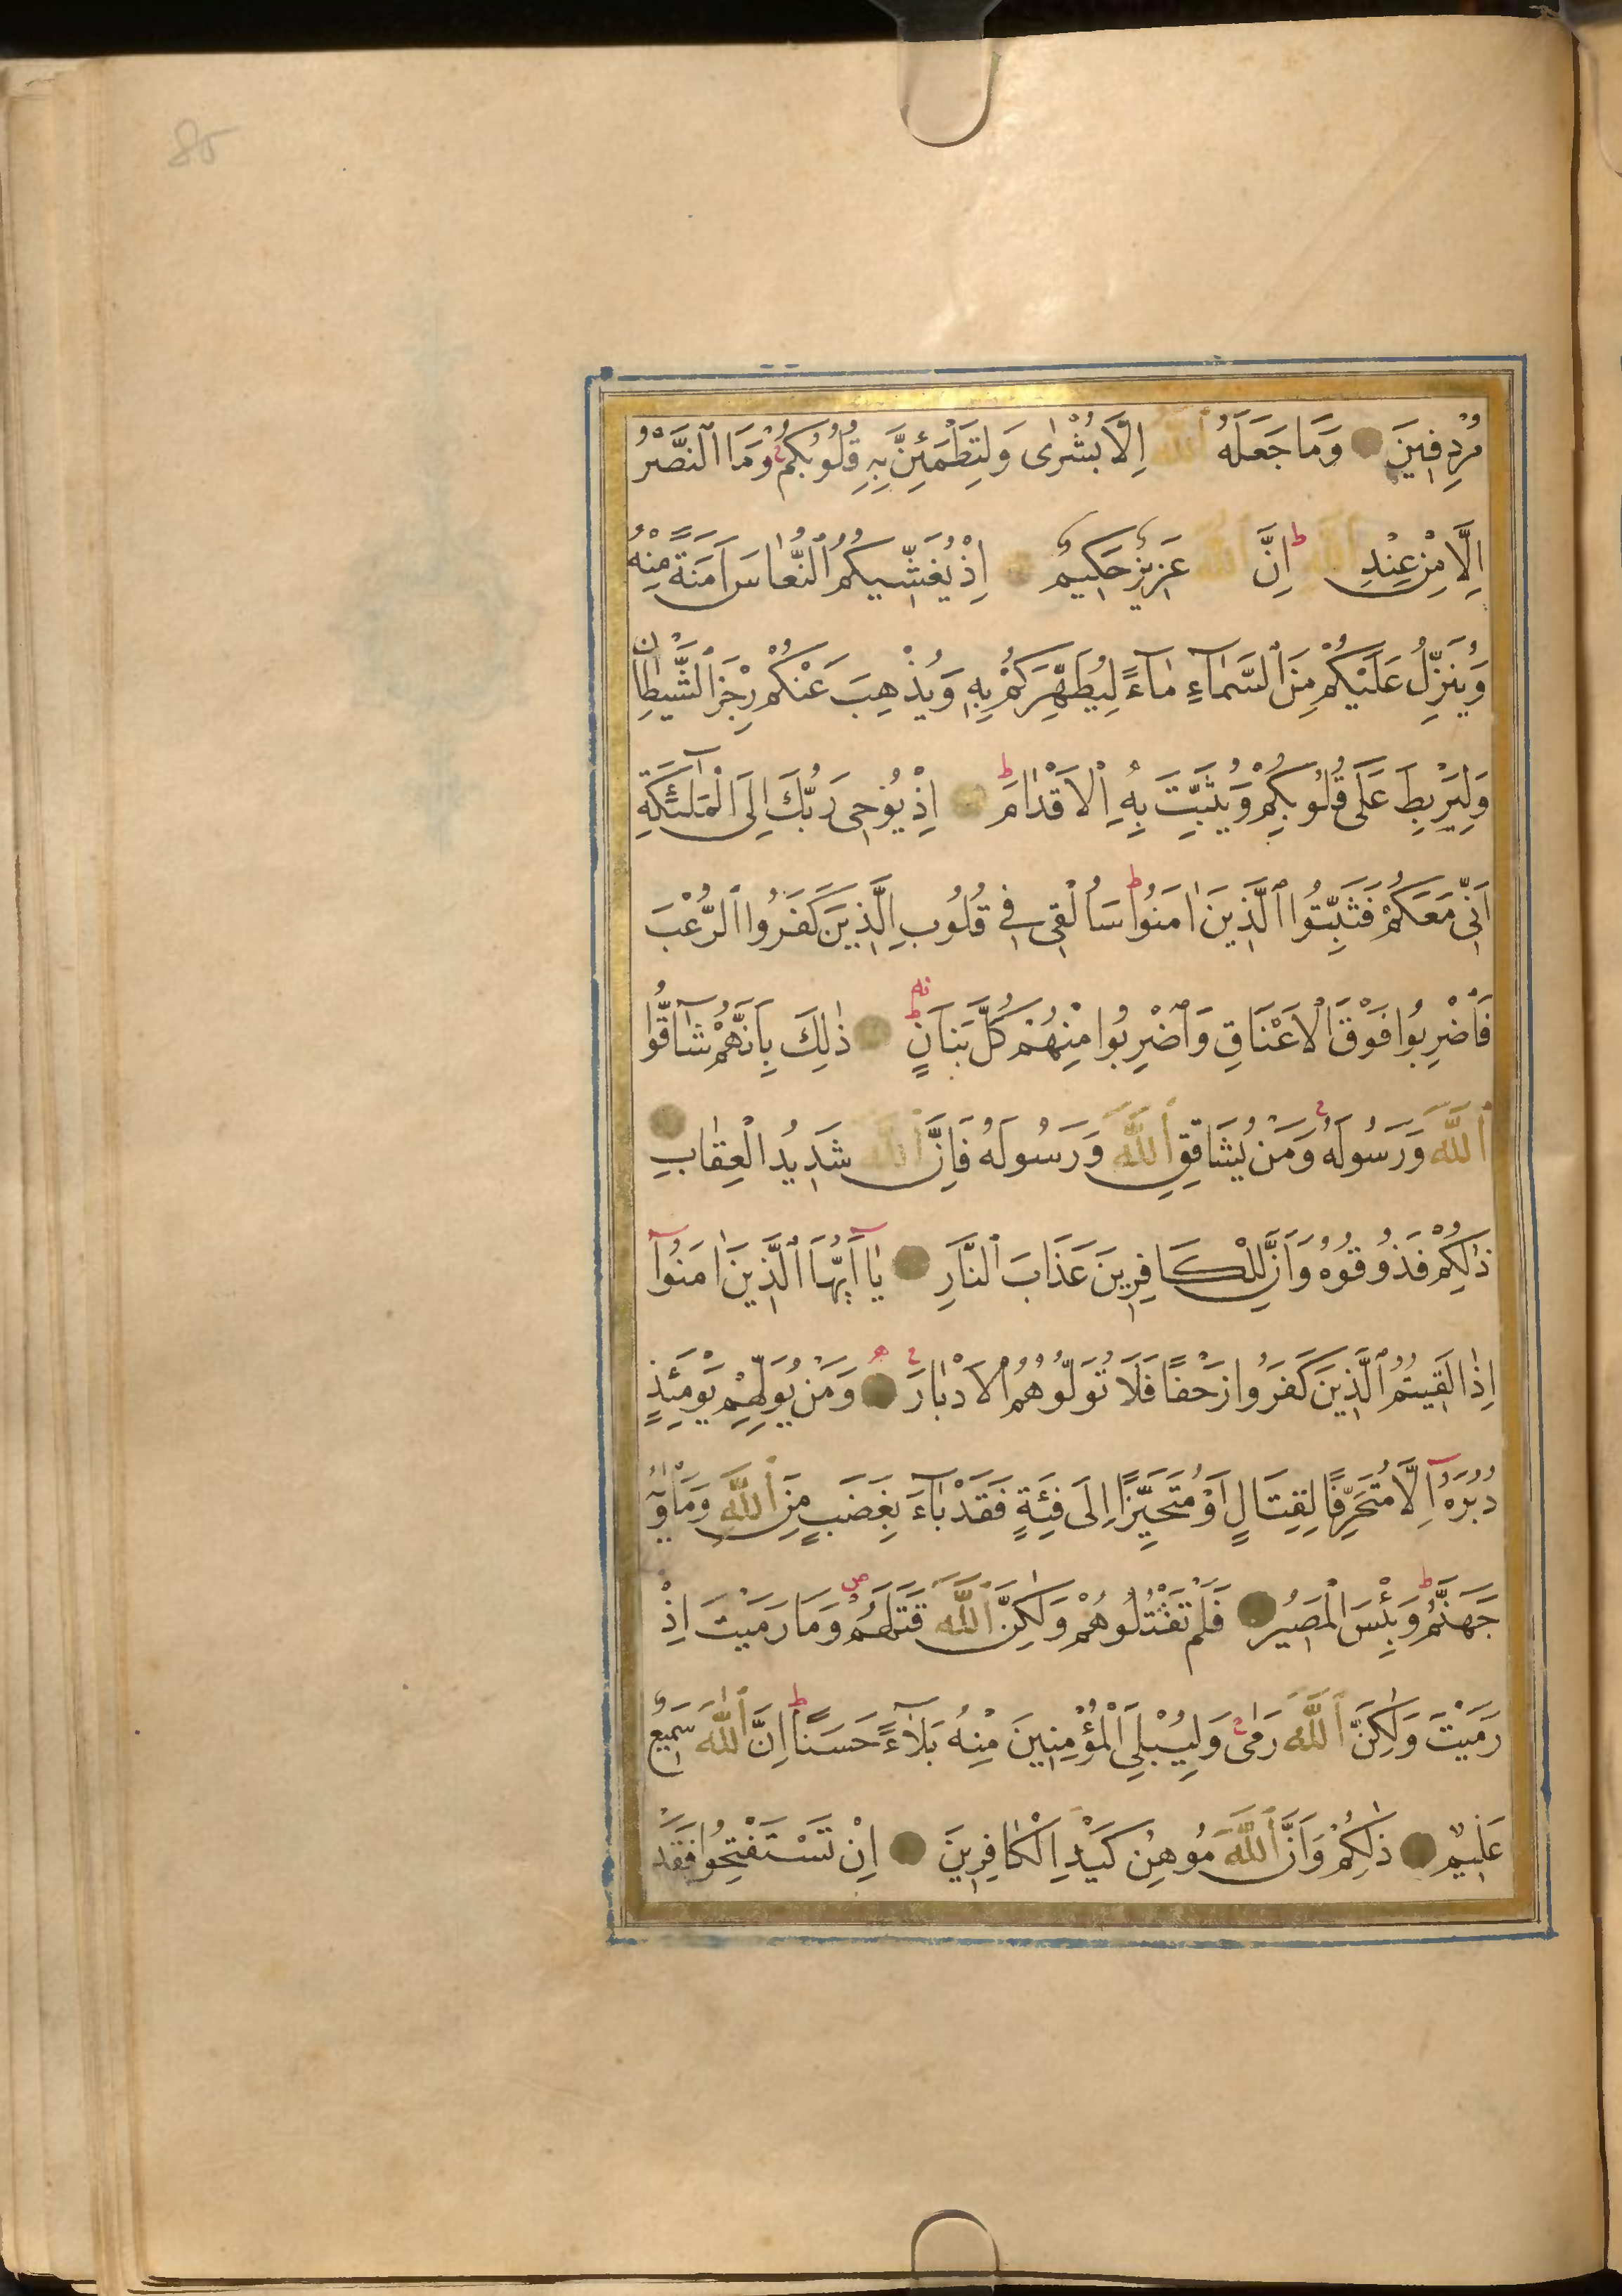 85
مُرْدِفِينَ وَمَا جَعَلَهُ ٱللّٰهُ اِلَّا بُشْرٰى وَلِتَطْمَئِنَّ بِهِ قُلُوبُكُمْ ۚ وَمَا ٱلنَّصْرُ
اِلَّا مِنْ عِنْدِ ٱللّٰهِ ۗ اِنَّ ٱللّٰهَ عَزِيزٌ حَكِيمٌ اِذْ يُغَشِّيكُمُ ٱلنُّعَاسَ اَمَنَةً مِنْهُ
وَيُنَزِّلُ عَلَيْكُمْ مِنَ ٱلسَّمَآءِ مَآءً لِيُطَهِّرَكُمْ بِهٖ وَيُذْهِبَ عَنْكُمْ رِجْزَ ٱلشَّيْطَانِ
وَلِيَرْبِطَ عَلٰى قُلُوبِكُمْ وَيُثَبِّتَ بِهِ ٱلْاَقْدَامَ ط اِذْ يُوحِى رَبُّكَ اِلَى ٱلْمَلٰٓئِكَةِ
اَنِّى مَعَكُمْ فَثَبِّتُوا ٱلَّذِينَ اٰمَنُوا ط سَاُلْقِى فِى قُلُوبِ ٱلَّذِينَ كَفَرُوا ٱلرُّعْبَ
فَاضْرِبُوا فَوْقَ ٱلْاَعْنَاقِ وَٱضْرِبُوا مِنْهُمْ كُلَّ بَنَانٍ ط ذٰلِكَ بِاَنَّهُمْ شَآقُّوا
ٱللّٰهَ وَرَسُولَهُ ۚ وَمَنْ يُشَاقِقِ ٱللّٰهَ وَرَسُولَهُ فَاِنَّ ٱللّٰهَ شَدِيدُ ٱلْعِقَابِ
ذٰلِكُمْ فَذُوقُوهُ وَاَنَّ لِلْكَافِرِينَ عَذَابَ ٱلنَّارِ يَآ اَيُّهَا ٱلَّذِينَ اٰمَنُوٓا
اِذَا لَقِيتُمُ ٱلَّذِينَ كَفَرُوا زَحْفًا فَلَا تُوَلُّوهُمُ ٱلْاَدْبَارَ ۚ وَمَنْ يُوَلِّهِمْ يَوْمَئِذٍ
دُبُرَهُٓ اِلَّا مُتَحَرِّفًا لِقِتَالٍ اَوْ مُتَحَيِّزًا اِلٰى فِئَةٍ فَقَدْ بَآءَ بِغَضَبٍ مِنَ ٱللّٰهِ وَمَأْوٰيهُ
جَهَنَّمُ ط وَبِئْسَ ٱلْمَصِيرُ فَلَمْ تَقْتُلُوهُمْ وَلٰكِنَّ ٱللّٰهَ قَتَلَهُمْ ص وَمَا رَمَيْتَ اِذْ
رَمَيْتَ وَلٰكِنَّ ٱللّٰهَ رَمٰى ۚ وَلِيُبْلِىَ ٱلْمُؤْمِنِينَ مِنْهُ بَلَآءً حَسَنًا ط اِنَّ ٱللّٰهَ سَمِيعٌ
عَلِيمٌ ذٰلِكُمْ وَاَنَّ ٱللّٰهَ مُوهِنُ كَيْدِ ٱلْكَافِرِينَ اِنْ تَسْتَفْتِحُوا فَقَدْ